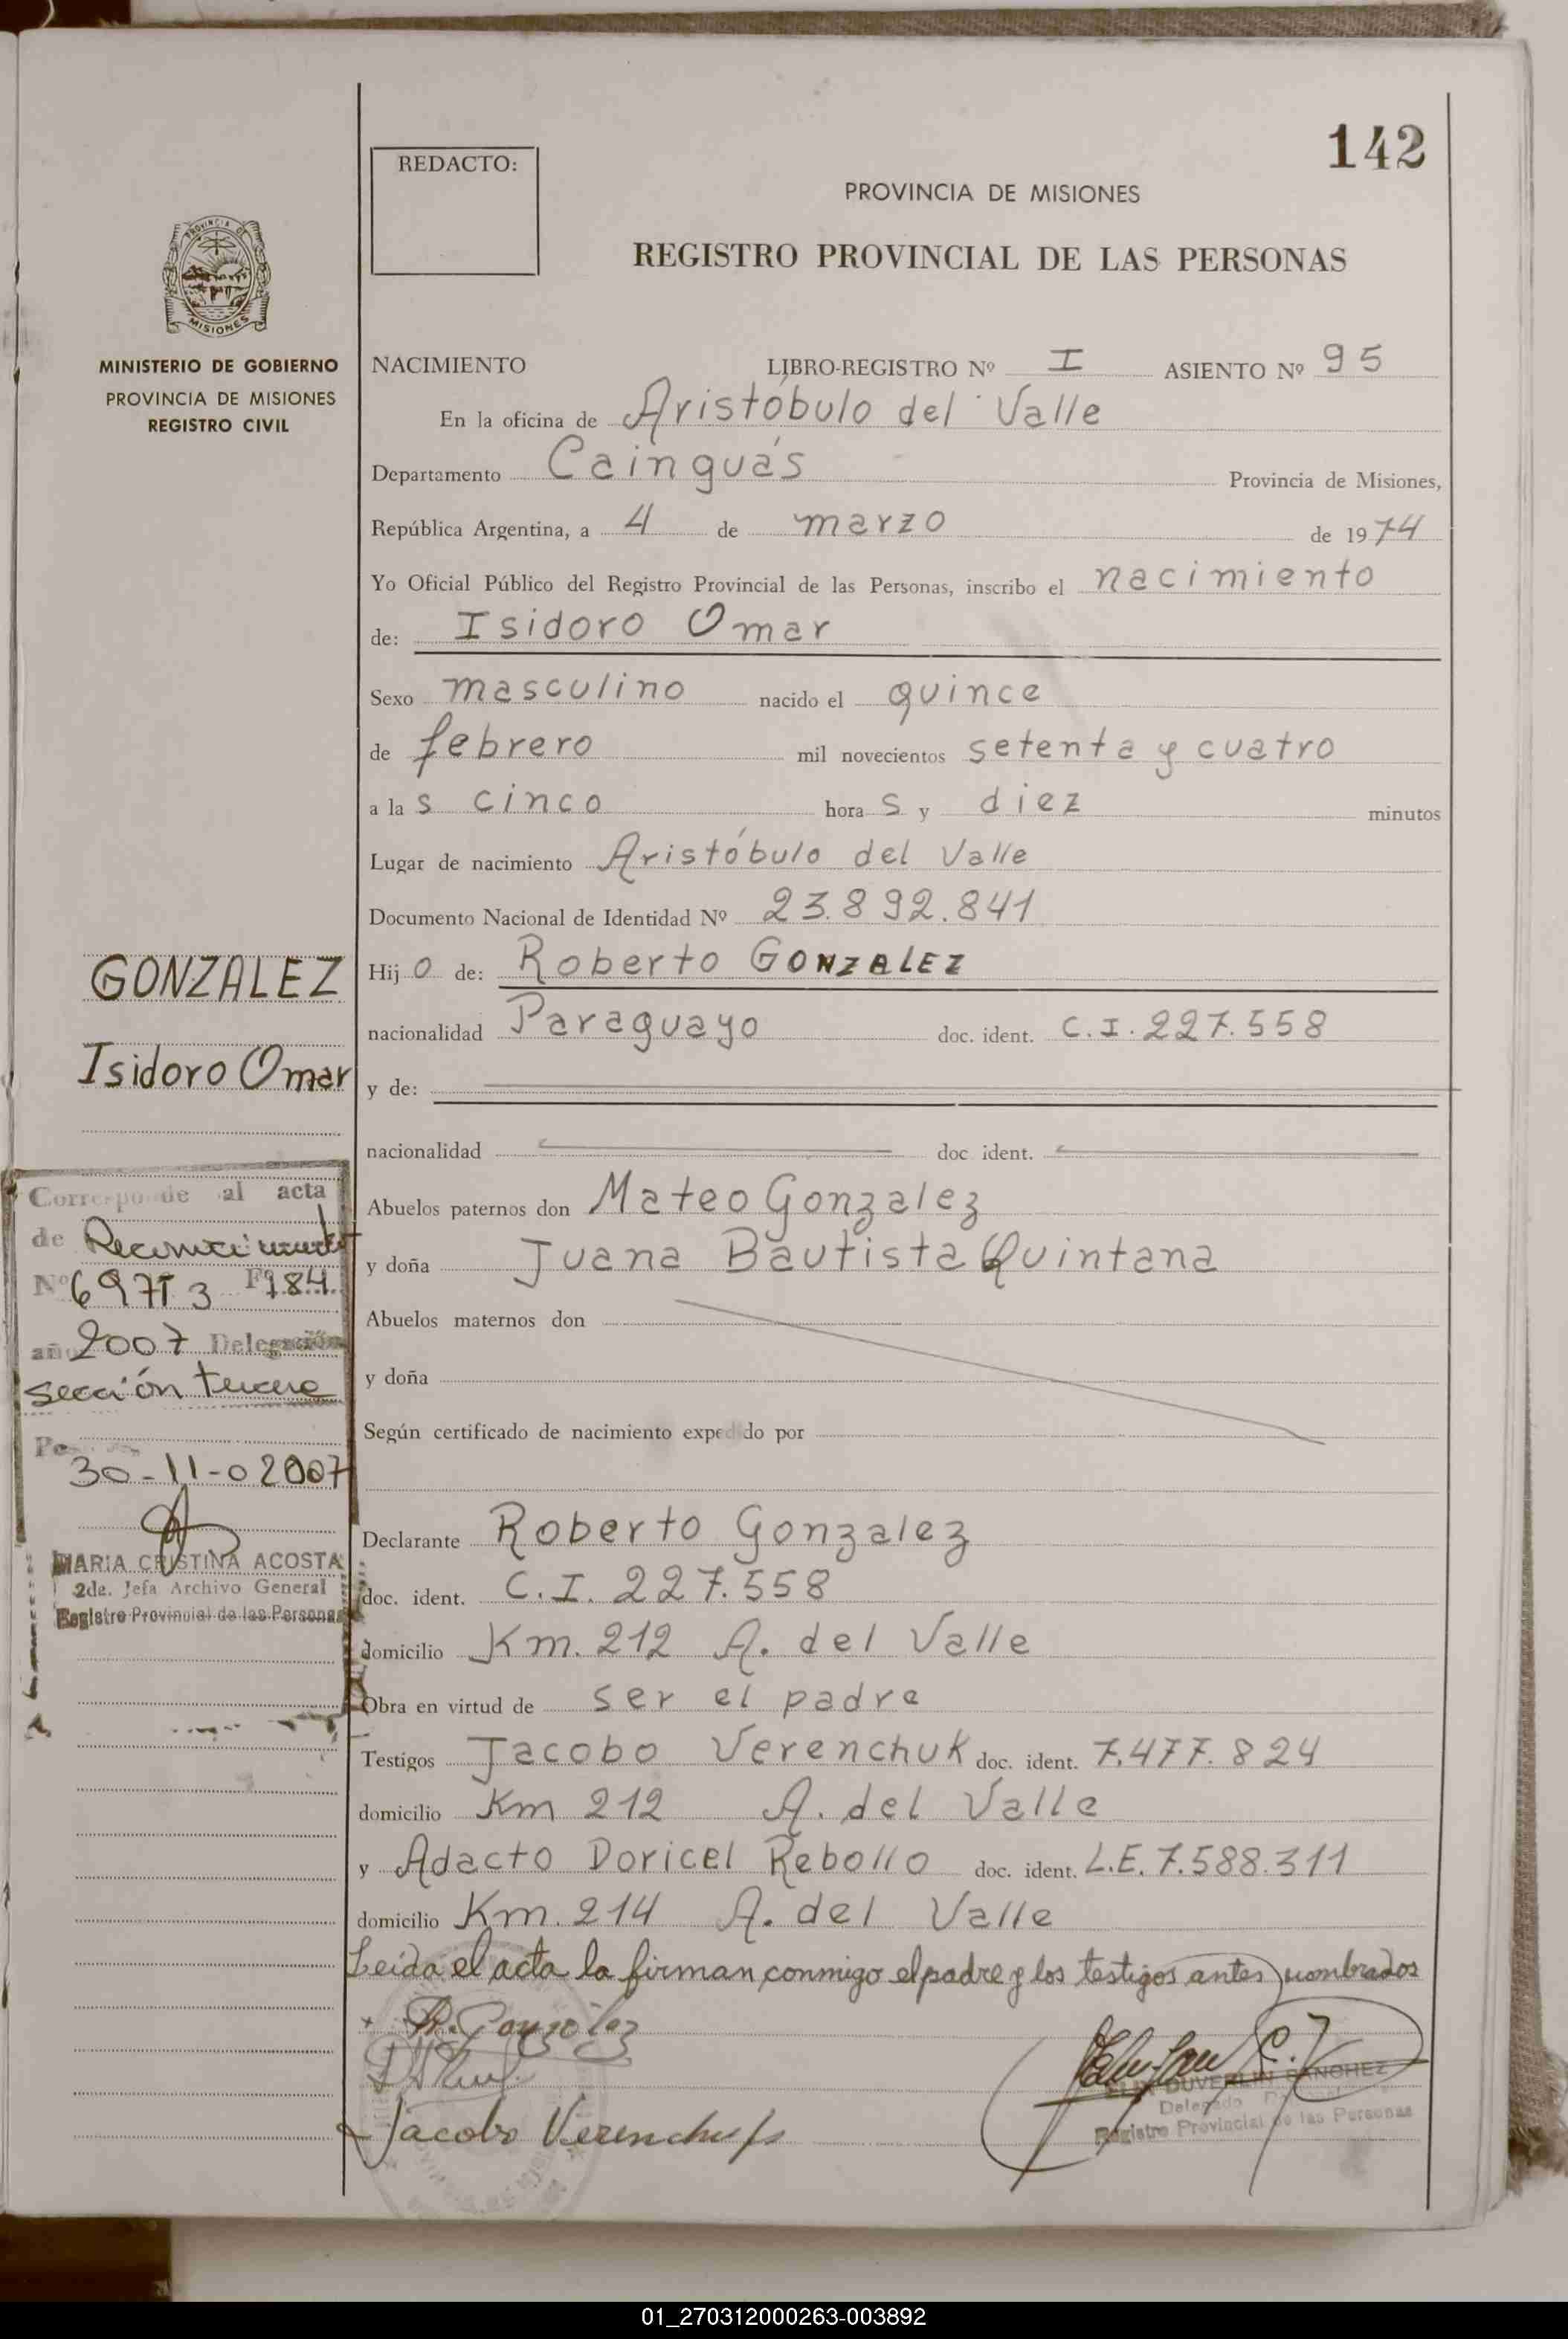 142
REDACTO:
PROVINCIA DE MISIONES
REGISTRO PROVINCIAL DE LAS PERSONAS
PROVINCIA DE
MISIONES
MINISTERIO DE GOBIERNO
PROVINCIA DE MISIONES
REGISTRO CIVIL
NACIMIENTO LIBRO-REGISTRO Nº I ASIENTO Nº 95
En la oficina de Aristóbulo del Valle
Departamento Cainguás Provincia de Misiones,
República Argentina, a 4 de marzo de 1974
Yo Oficial Público del Registro Provincial de las Personas, inscribo el nacimiento
de: Isidoro Omar
Sexo masculino nacido el quince
de febrero mil novecientos setenta y cuatro
a las cinco horas y diez minutos
Lugar de nacimiento Aristóbulo del Valle
Documento Nacional de Identidad Nº 23.892.841
Hijo de: Roberto GONZALEZ
nacionalidad Paraguayo doc. ident. C.I. 227.558
y de:
nacionalidad doc. ident.
Abuelos paternos don Mateo Gonzalez
y doña Juana Bautista Quintana
Abuelos maternos don
y doña
Según certificado de nacimiento expedido por
Declarante Roberto Gonzalez
doc. ident. C.I. 227.558
domicilio Km. 212 A. del Valle
Obra en virtud de ser el padre
Testigos Jacobo Verenchuk doc. ident. 7.477.824
domicilio Km 212 A. del Valle
y Adacto Doricel Rebollo doc. ident. L.E. 7.588.311
domicilio Km. 214 A. del Valle
Leída el acta la firman conmigo el padre y los testigos antes nombrados
R. Gonzolez
Jacobo Verenchuk
SANCHEZ
Delegado
Registro Provincial de las Personas
GONZALEZ
Isidoro Omar
Corresponde al acta
de Reconocimiento
Nº 697 T 3 Fº 184
año 2007 Delegación
sección tercera
30-11-02007
MARIA CRISTINA ACOSTA
2da. Jefa Archivo General
Registro Provincial de las Personas
01_270312000263-003892